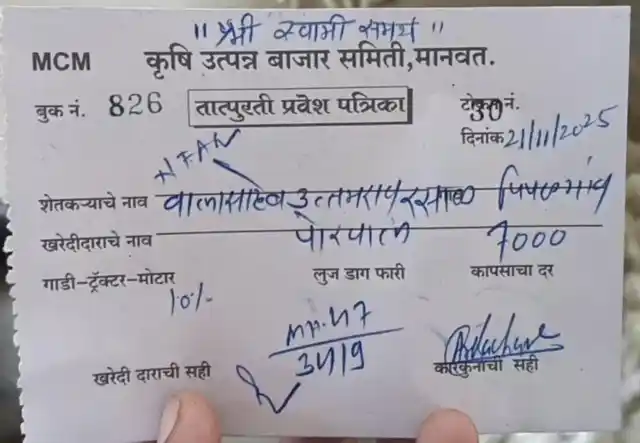 " श्री स्वामी समर्थ "
MCM कृषि उत्पन्न बाजार समिती,मानवत.
बुक नं. 826 तात्पुरती प्रवेश पत्रिका टोकन नं. 30
दिनांक 21/11/2025
शेतकऱ्याचे नाव बालासाहेब उत्तमराव रसाळ पिंपळगांव
खरेदीदाराचे नाव पोरवाल 7000
गाडी-ट्रॅक्टर-मोटार लुज डाग फारी कापसाचा दर
10%
MH.47
3419
खरेदी दाराची सही कारकुनाची सही